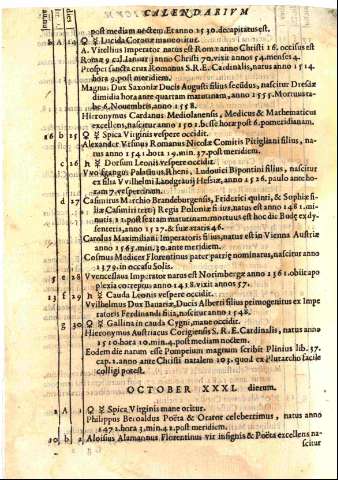 CALENDARIVM
post mediam noctem. Et anno 1530. decapitatus est.
b A 24 ☿ Lucida Coronæ mane oritur.
A. Vitellius Imperator natus est Romæ anno Christi 16. occisus est
Romæ 9 cal. Ianuar. anno Christi 70. vixit annos 54. menses 4.
Prosper sancta crux Romanus S. R. E. Cardinalis, natus anno 1514.
hora 9. post meridiem.
Magnus Dux Saxoniæ Ducis Augusti filius secundus, nascitur Dresdæ
dimidia hora ante quartam matutinam, anno 1555. Mortuus ta-
be 6. Nouembris, anno 1558.
Hieronymus Cardanus Mediolanensis, Medicus & Mathematicus
excellens, nascitur anno 1501. bisse horæ post 6. pomeridianam.
16 b 25 ♀ ☿ Spica Virginis vespere occidit.
Alexander Vrsinus Romanus Nicolai Comitis Pitigliani filius, na-
tus anno 1541. hora 19. min. 37. post meridiem.
c 26 ♄ ☿ Dorsum Leonis vespere occidit.
Vuolfgangus Palatinus Rheni, Ludouici Bipontini filius, nascitur
ex filia Vvilhelmi Landtgrauij Hessiæ, anno 1526. paulo ante ho-
ram 7. vespertinam.
5 d 27 Casimirus Marchio Brandeburgensis, Friderici quinti, & Sophiæ fi-
liæ Casimiri tertij Regis Poloniæ filius, natus est anno 1481. mi-
nutis, 12. post sextam matutinam, mortuus est hoc die Budæ ex dy-
senteria, anno 1527. & suæ ætatis 46.
Carolus Maximiliani Imperatoris filius, natus est in Vienna Austriæ
anno 1565. min. 30. ante meridiem.
Cosmus Medices Florentinus pater patriæ nominatus, nascitur anno
1379. in occasu Solis.
5 e 28 Vvenceslaus Imperator natus est Norimbergæ anno 1361. obiit apo
plexia correptus anno 1418. vixit annos 57.
13 f 29 ♄ ☿ Cauda Leonis vespere occidit.
Vvilhelmus Dux Bauariæ, Ducis Alberti filius primogenitus ex Impe
ratoris Ferdinandi filia, nascitur anno 1548.
g 30 ♀ ☿ Gallina in cauda Cygni, mane occidit.
Hieronymus Austriacus Corigiensis S. R. E. Cardinalis, natus anno
1510. hora 10. min. 4. post mediam noctem.
Eodem die natum esse Pompeium magnum scribit Plinius lib. 37.
cap. 2. anno ante Christi natalem 103. quod ex Plutarcho facile
colligi potest.
OCTOBER XXXI. dierum.
2 A 1 ♀ ☿ Spica Virginis mane oritur.
Philippus Beroaldus Poëta & Orator celeberrimus, natus anno
1472. hora 3. min. 42. post meridiem.
10 b 2 Aloisius Alamannus Florentinus vir insignis & Poëta excellens na-
scitur